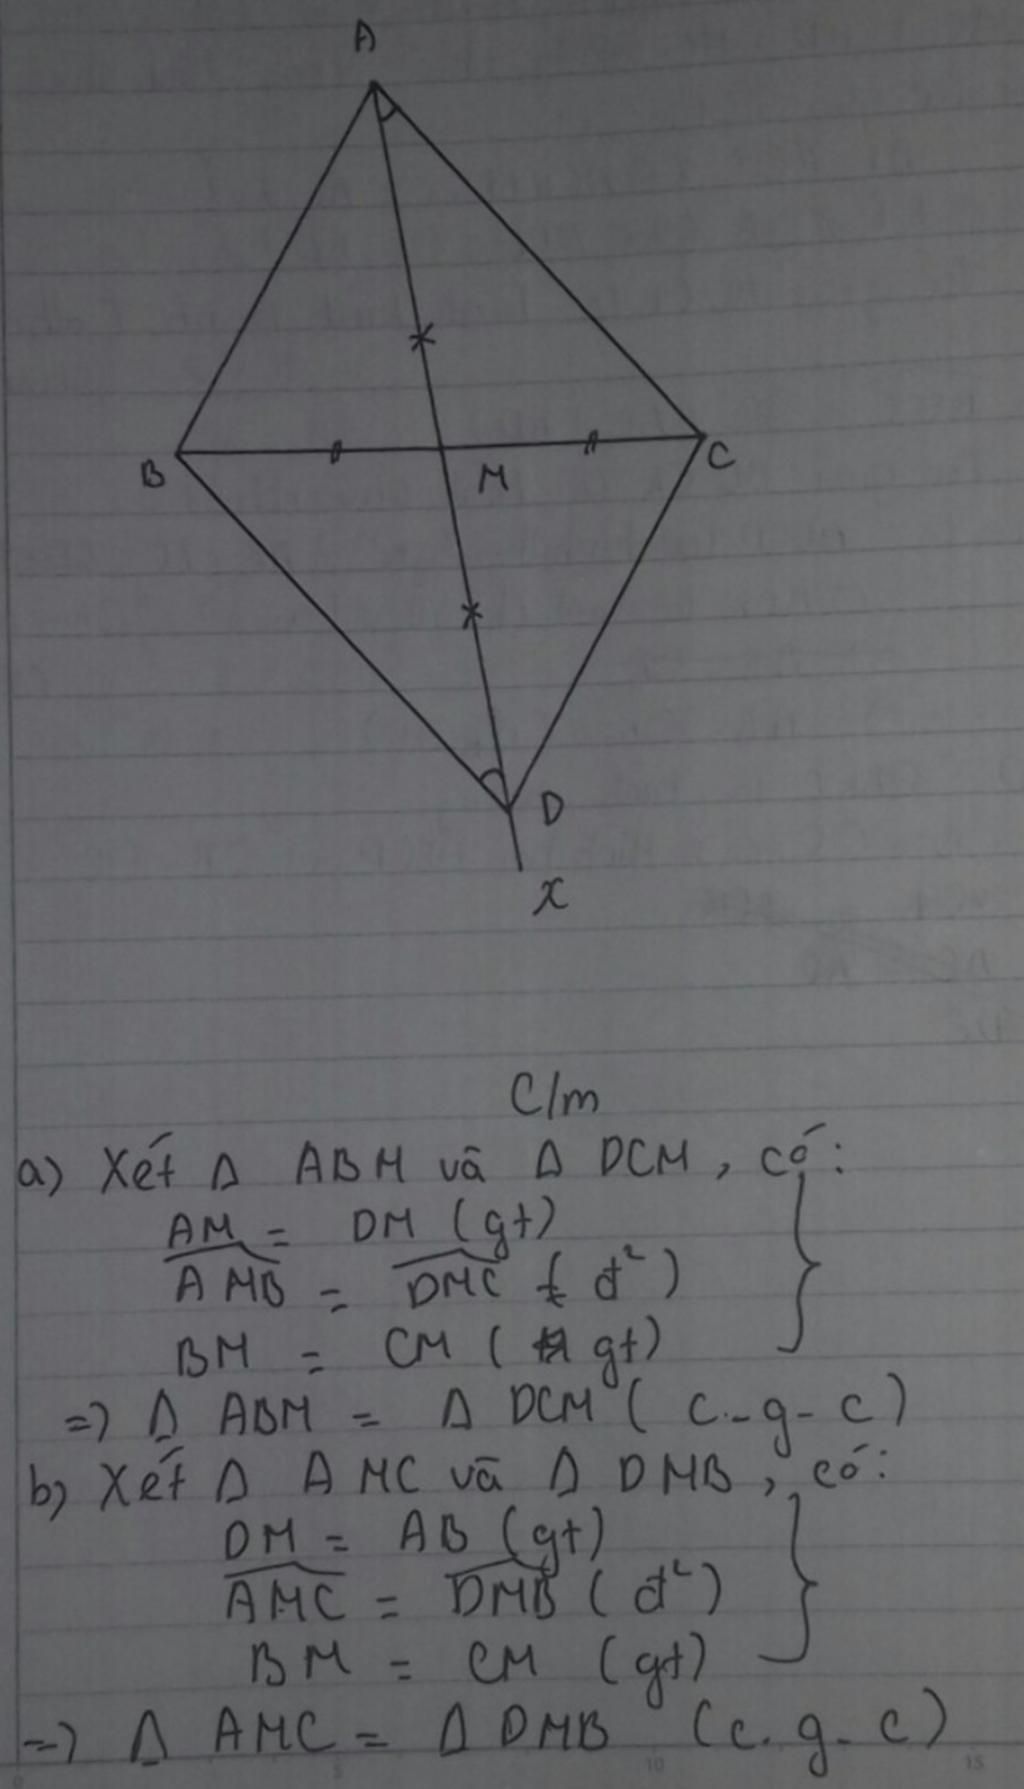 A
B
M
C
D
x
C/m
a) Xét Δ ABM và Δ DCM, có:
AM = DM (gt)
AMB = DMC (đ²)
BM = CM (gt)
=> Δ ABM = Δ DCM (c-g-c)
b) Xét Δ AMC và Δ DMB, có:
DM = AB (gt)
AMC = DMB (đ²)
BM = CM (gt)
=> Δ AMC = Δ DMB (c.g-c)
5
10
15